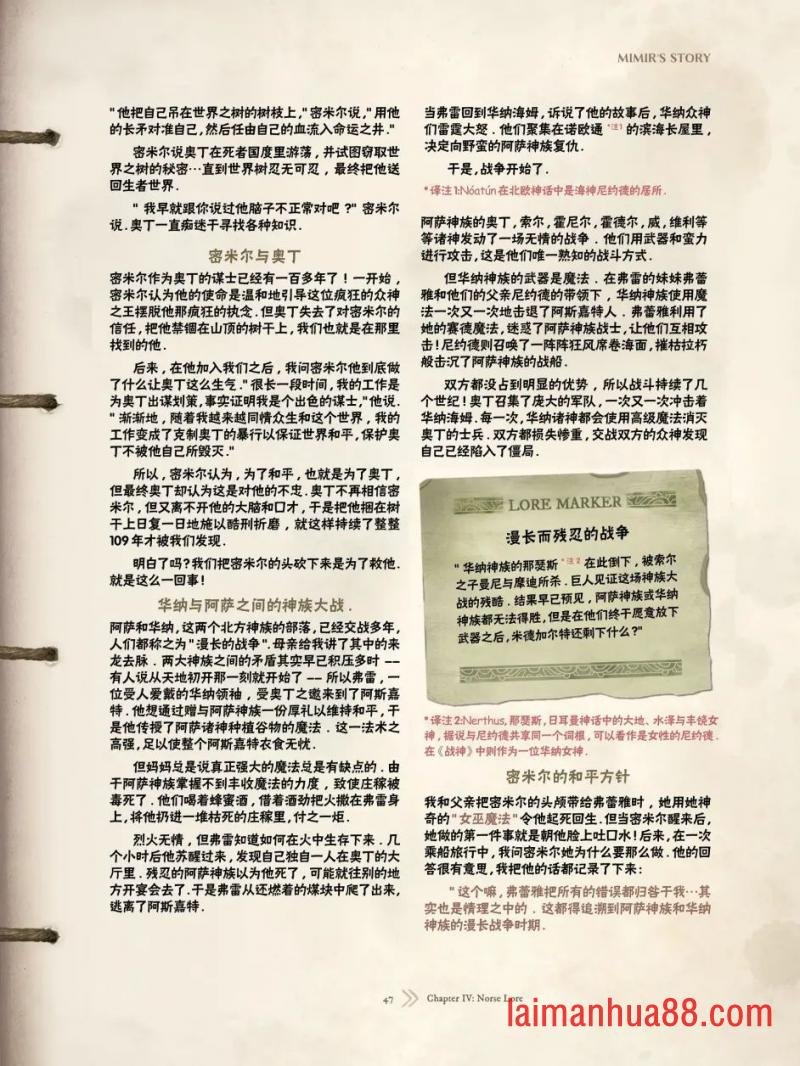 MIMIR'S STORY
"他把自己吊在世界之树的树枝上,"密米尔说,"用他
的长矛对准自己,然后任由自己的血流入命运之井."
密米尔说奥丁在死者国度里游荡，并试图窃取世
界之树的秘密…直到世界树忍无可忍，最终把他送
回生者世界.
"我早就跟你说过他脑子不正常对吧？"密米尔
说.奥丁一直痴迷于寻找各种知识.
密米尔与奥丁
密米尔作为奥丁的谋士已经有一百多年了！一开始，
密米尔认为他的使命是温和地引导这位疯狂的众神
之王摆脱他那疯狂的执念.但奥丁失去了对密米尔的
信任，把他禁锢在山顶的树干上,我们也就是在那里
找到的他.
后来，在他加入我们之后，我问密米尔他到底做
了什么让奥丁这么生气."很长一段时间，我的工作是
为奥丁出谋划策,事实证明我是个出色的谋士,"他说.
"渐渐地，随着我越来越同情众生和这个世界，我的
工作变成了克制奥丁的暴行以保证世界和平,保护奥
丁不被他自己所毁灭."
所以，密米尔认为,为了和平，也就是为了奥丁，
但最终奥丁却认为这是对他的不忠.奥丁不再相信密
米尔，但又离不开他的大脑和口才，于是把他捆在树
干上日复一日地施以酷刑折磨，就这样持续了整整
109年才被我们发现.
明白了吗?我们把密米尔的头砍下来是为了救他.
就是这么一回事!
华纳与阿萨之间的神族大战.
阿萨和华纳,这两个北方神族的部落,已经交战多年,
人们都称之为"漫长的战争".母亲给我讲了其中的来
龙去脉．两大神族之间的矛盾其实早已积压多时 --
有人说从天地初开那一刻就开始了 -- 所以弗雷，一
位受人爱戴的华纳领袖，受奥丁之邀来到了阿斯嘉
特．他想通过赠与阿萨神族一份厚礼以维持和平，于
是他传授了阿萨诸神种植谷物的魔法．这一法术之
高强,足以使整个阿斯嘉特农食无忧.
但妈妈总是说真正强大的魔法总是有缺点的．由
于阿萨神族掌握不到丰收魔法的力度，致使庄稼被
毒死了．他们喝着蜂蜜酒，借着酒劲把火撒在弗雷身
上，将他扔进一堆枯死的庄稼里,付之一炬.
烈火无情，但弗雷知道如何在火中生存下来．几
个小时后他苏醒过来，发现自己独自一人在奥丁的大
厅里．残忍的阿萨神族以为他死了，可能就往别的地
方开宴会去了.于是弗雷从还燃着的煤块中爬了出来,
逃离了阿斯嘉特.
当弗雷回到华纳海姆，诉说了他的故事后，华纳众神
们雷霆大怒．他们聚集在诺欧通 *注1 的滨海长屋里，
决定向野蛮的阿萨神族复仇.
于是,战争开始了.
*译注1:Nóatún在北欧神话中是海神尼约德的居所.
阿萨神族的奥丁,索尔,霍尼尔,霍德尔,威,维利等
等诸神发动了一场无情的战争．他们用武器和蛮力
进行攻击,这是他们唯一熟知的战斗方式.
但华纳神族的武器是魔法．在弗雷的妹妹弗蕾
雅和他们的父亲尼约德的带领下，华纳神族使用魔
法一次又一次地击退了阿斯嘉特人．弗蕾雅利用了
她的赛德魔法，迷惑了阿萨神族战士，让他们互相攻
击!尼约德则召唤了一阵阵狂风席卷海面,摧枯拉朽
般击沉了阿萨神族的战船.
双方都没占到明显的优势，所以战斗持续了几
个世纪！奥丁召集了庞大的军队，一次又一次冲击着
华纳海姆.每一次,华纳诸神都会使用高级魔法消灭
奥丁的士兵.双方都损失惨重，交战双方的众神发现
自己已经陷入了僵局.
LORE MARKER
漫长而残忍的战争
"华纳神族的那瑟斯 *注2 在此倒下，被索尔
之子曼尼与摩迪所杀．巨人见证这场神族大
战的残酷．结果早已预见，阿萨神族或华纳
神族都无法得胜,但是在他们终于愿意放下
武器之后,米德加尔特还剩下什么?"
*译注2:Nerthus,那瑟斯,日耳曼神话中的大地、水泽与丰饶女
神，据说与尼约德共享同一个词根，可以看作是女性的尼约德.
在《战神》中则作为一位华纳女神.
密米尔的和平方针
我和父亲把密米尔的头颅带给弗蕾雅时，她用她神
奇的"女巫魔法"令他起死回生.但当密米尔醒来后,
她做的第一件事就是朝他脸上吐口水!后来，在一次
乘船旅行中，我问密米尔她为什么要那么做．他的回
答很有意思,我把他的话都记录了下来：
"这个嘛，弗蕾雅把所有的错误都归咎于我…其
实也是情理之中的．这都得追溯到阿萨神族和华纳
神族的漫长战争时期.
47 Chapter IV: Norse Lore
laimanhua88.com